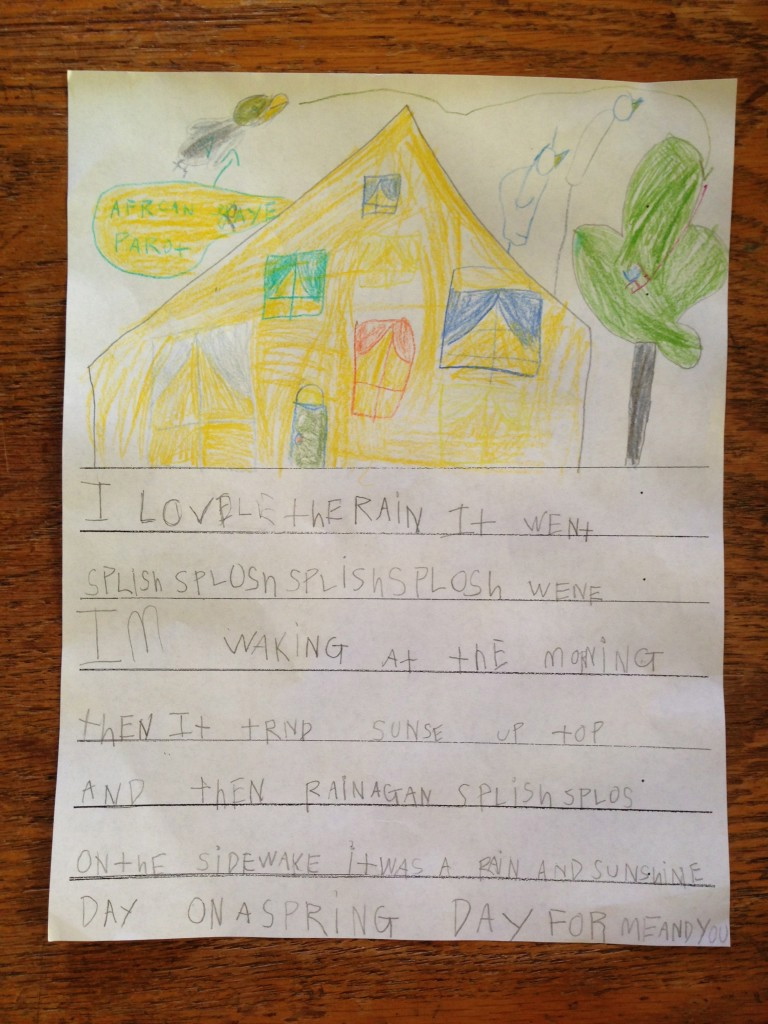 AFRCAN GRAYE
PAROt
I LOVELE thE RAIN It WENt
SPLISh SPLOSh SPLiSh SPLOSh WENE
IM WAKING At thE MORNING
thEN It tRND SUNSE UP tOP
AND thEN RAINAGAN SPLISh SPLOS
ON thE SIDEWAKE itWAS A RAIN AND SUNShiNE
DAY ON A SPRING DAY FOR ME AND YOU